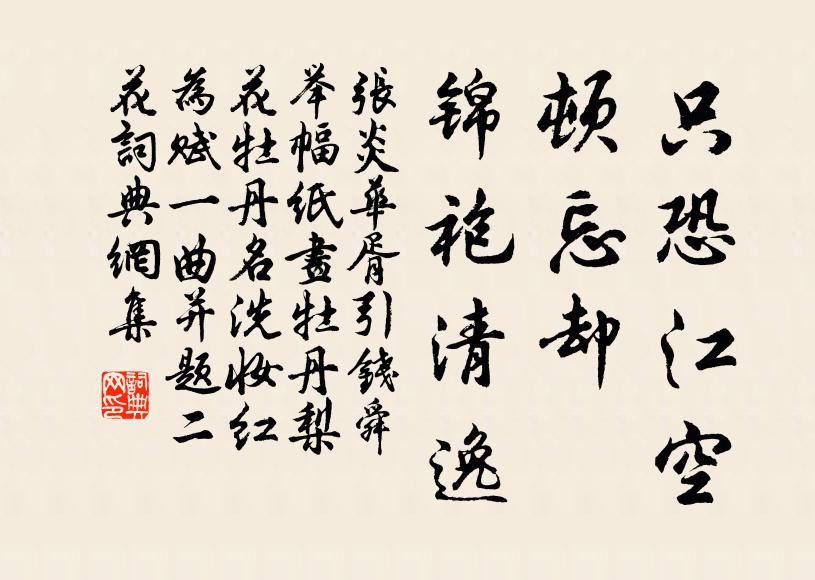 只恐江空
頓忘却
锦袍清逸
張炎華胥引錢舜
举幅紙畫牡丹梨
花牡丹名洗妆红
為赋一曲并题二
花詞典網集
詞典网印